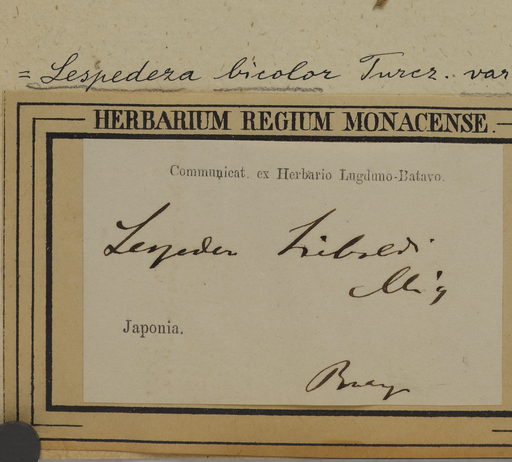 = Lespedeza bicolor Turcz. var
HERBARIUM REGIUM MONACENSE.
Communicat. ex Herbario Lugduno-Batavo.
Lespedeza Sieboldi
Miq
Japonia.